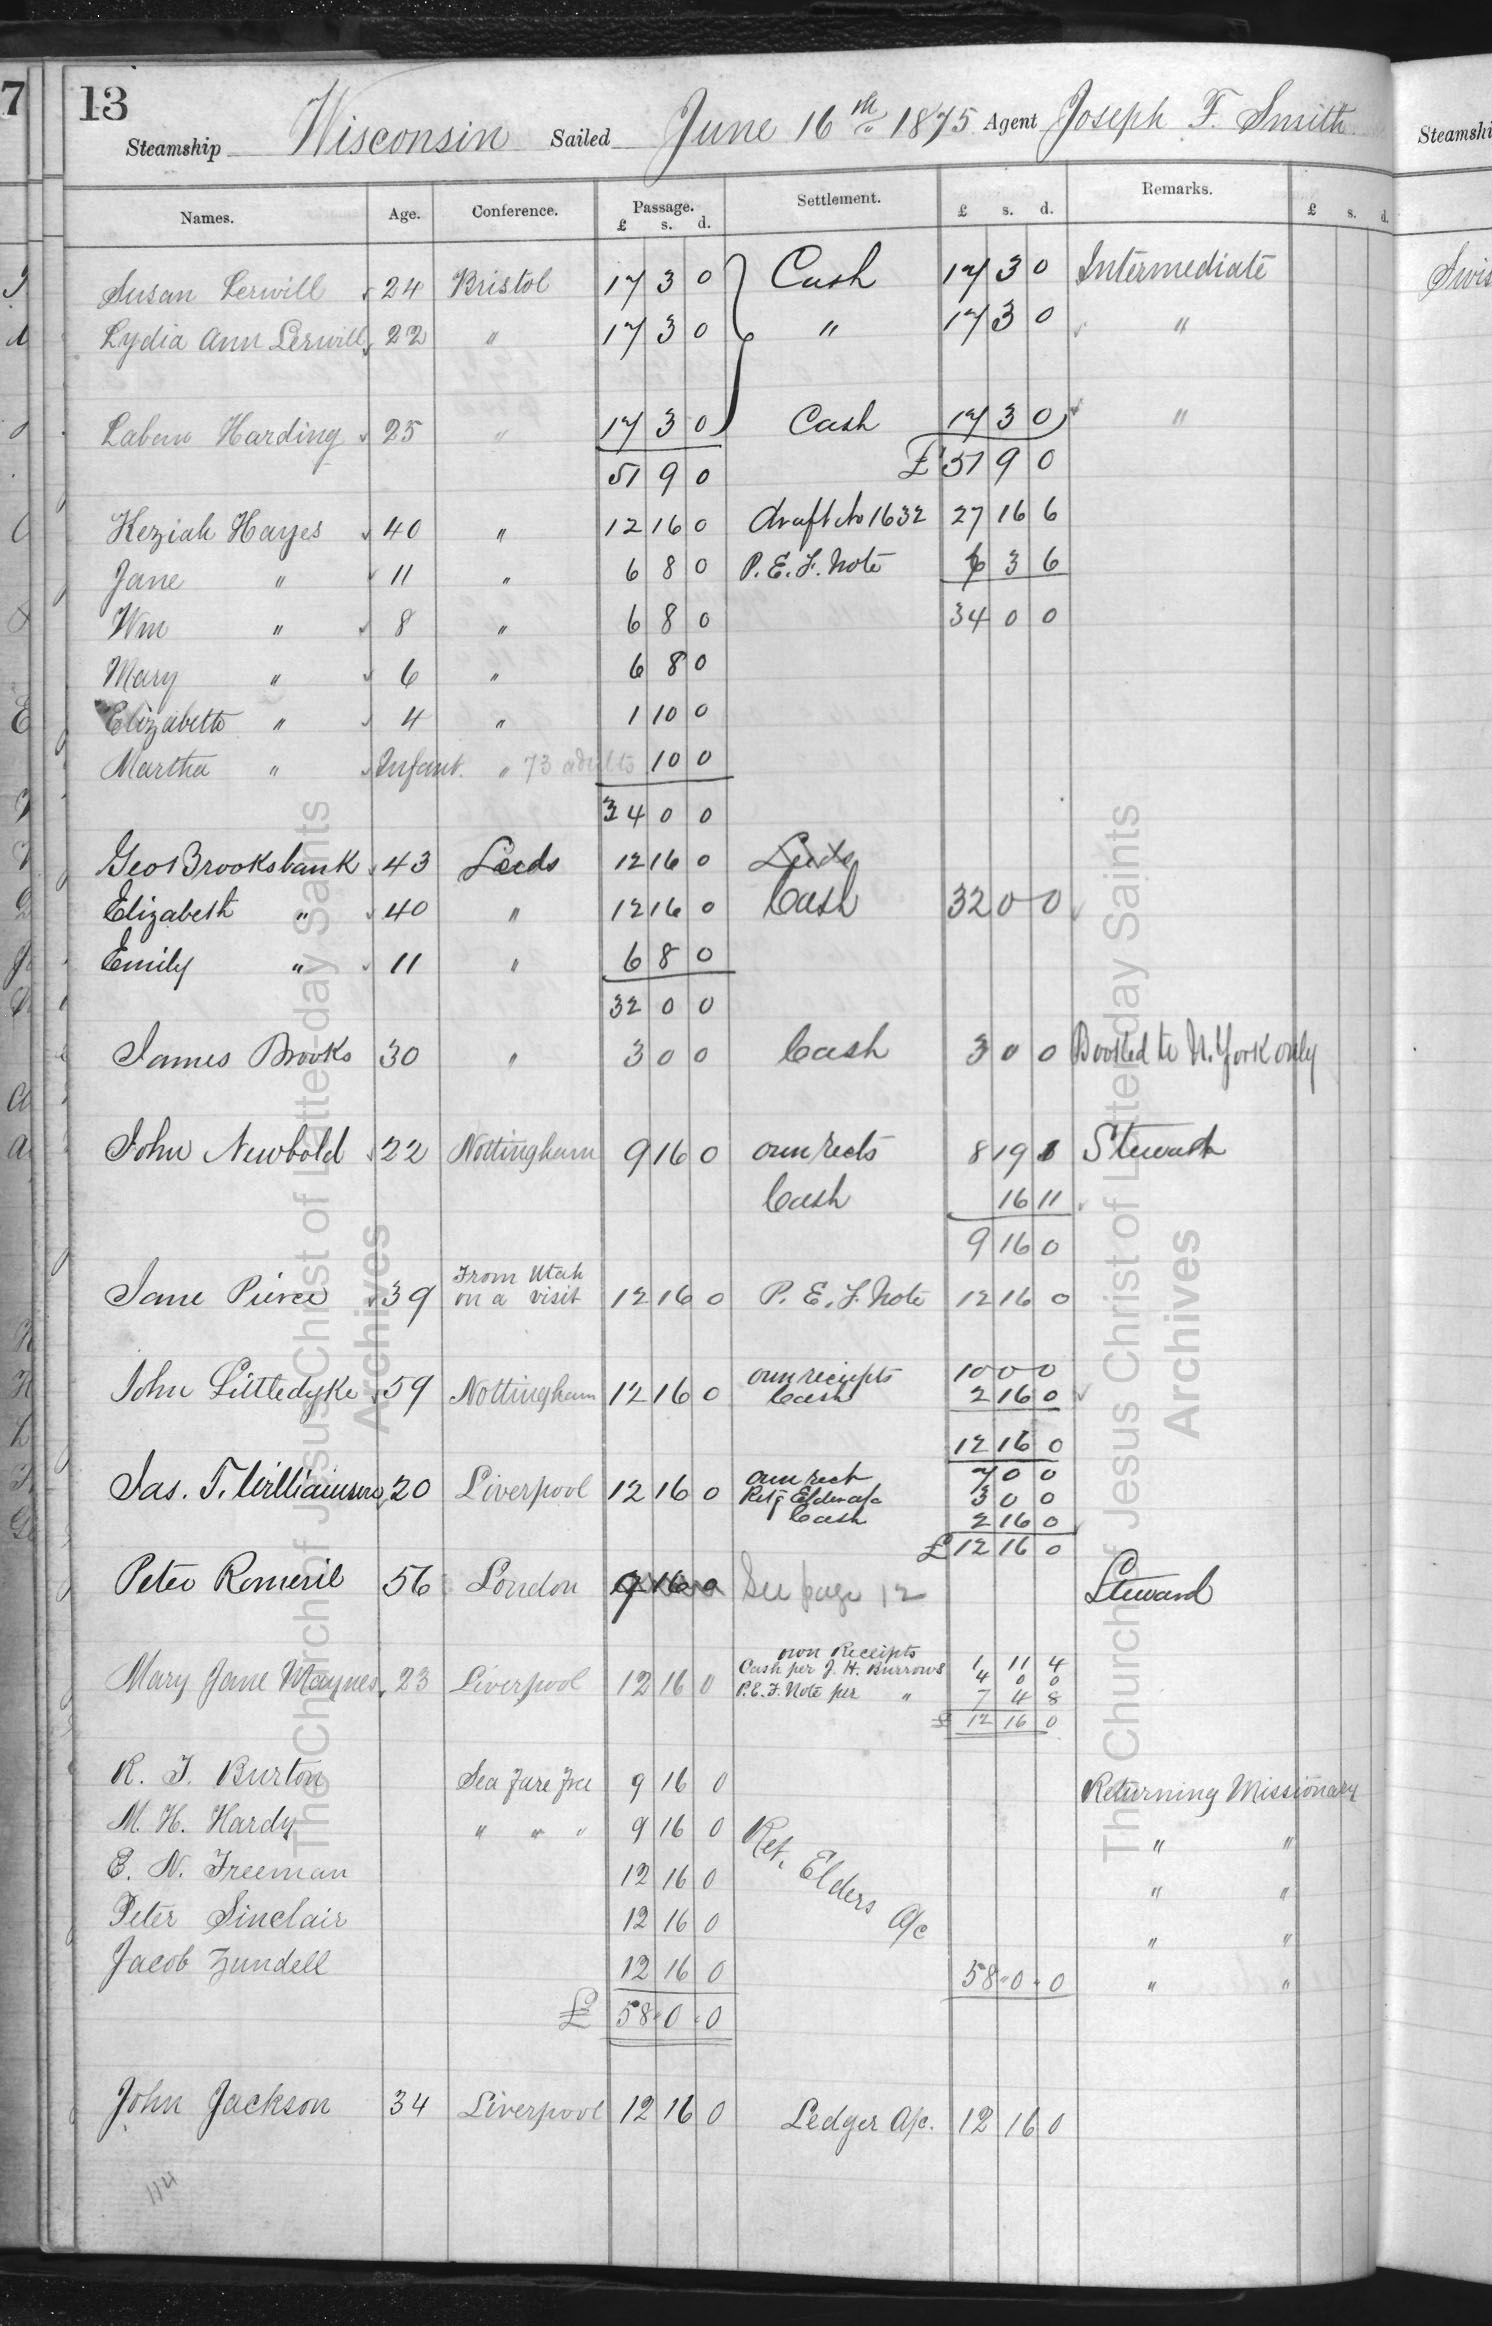 13
Steamship Wisconsin Sailed June 16th 1875 Agent Joseph F. Smith
Names. Age. Conference. Passage. £ s. d. Settlement. £ s. d. Remarks. £ s. d.
Susan Lerwill 24 Bristol 17 3 0 Cash 17 3 0 Intermediate
Lydia Ann Lerwill 22 " 17 3 0 " 17 3 0 "
Laben Harding 25 " 17 3 0 Cash 17 3 0 "
51 9 0 £51 9 0
Keziah Hayes 40 " 12 16 0 draft No 1632 27 16 6
Jane " 11 " 6 8 0 P. E. F. Note 6 3 6
Wm " 8 " 6 8 0 34 0 0
Mary " 6 " 6 8 0
Elizabeth " 4 " 1 10 0
Martha " Infant. " 73 adults 10 0
34 0 0
Geo Brooksbank 43 Leeds 12 16 0 Leeds
Elizabeth " 40 " 12 16 0 Cash 32 0 0
Emily " 11 " 6 8 0
32 0 0
James Brooks 30 " 3 0 0 Cash 3 0 0 Booked to N. York only
John Newbold 22 Nottingham 9 16 0 own rects 8 19 1 Steward
Cash 16 11
9 16 0
Jane Pierce 39 From Utah on a visit 12 16 0 P. E. F. Note 12 16 0
John Littledyke 59 Nottingham 12 16 0 own reciepts 10 0 0
Cash 2 16 0
12 16 0
Jas. T. Williamson 20 Liverpool 12 16 0 own rect 7 0 0
Retg Elder a/c 3 0 0
Cash 2 16 0
£ 12 16 0
Peter Romeril 56 London 9 16 0 See page 12 Steward
own Receipts 1 11 4
Mary Jane Maynes 23 Liverpool 12 16 0 Cash per J. H. Burrows 4 0 0
P.E.F. Note per " 7 4 8
£ 12 16 0
R. T. Burton Sea Fare Free 9 16 0 Returning Missionary
M. H. Hardy " " " 9 16 0 Ret. Elders a/c " "
E. N. Freeman 12 16 0 " "
Peter Sinclair 12 16 0 " "
Jacob Zundell 12 16 0 58 " 0 " 0 " "
£ 58 " 0 " 0
John Jackson 34 Liverpool 12 16 0 Ledger a/c. 12 16 0
114
The Church of Jesus Christ of Latter-day Saints
Archives
The Church of Jesus Christ of Latter-day Saints
Archives
7
Steamshi
Swis